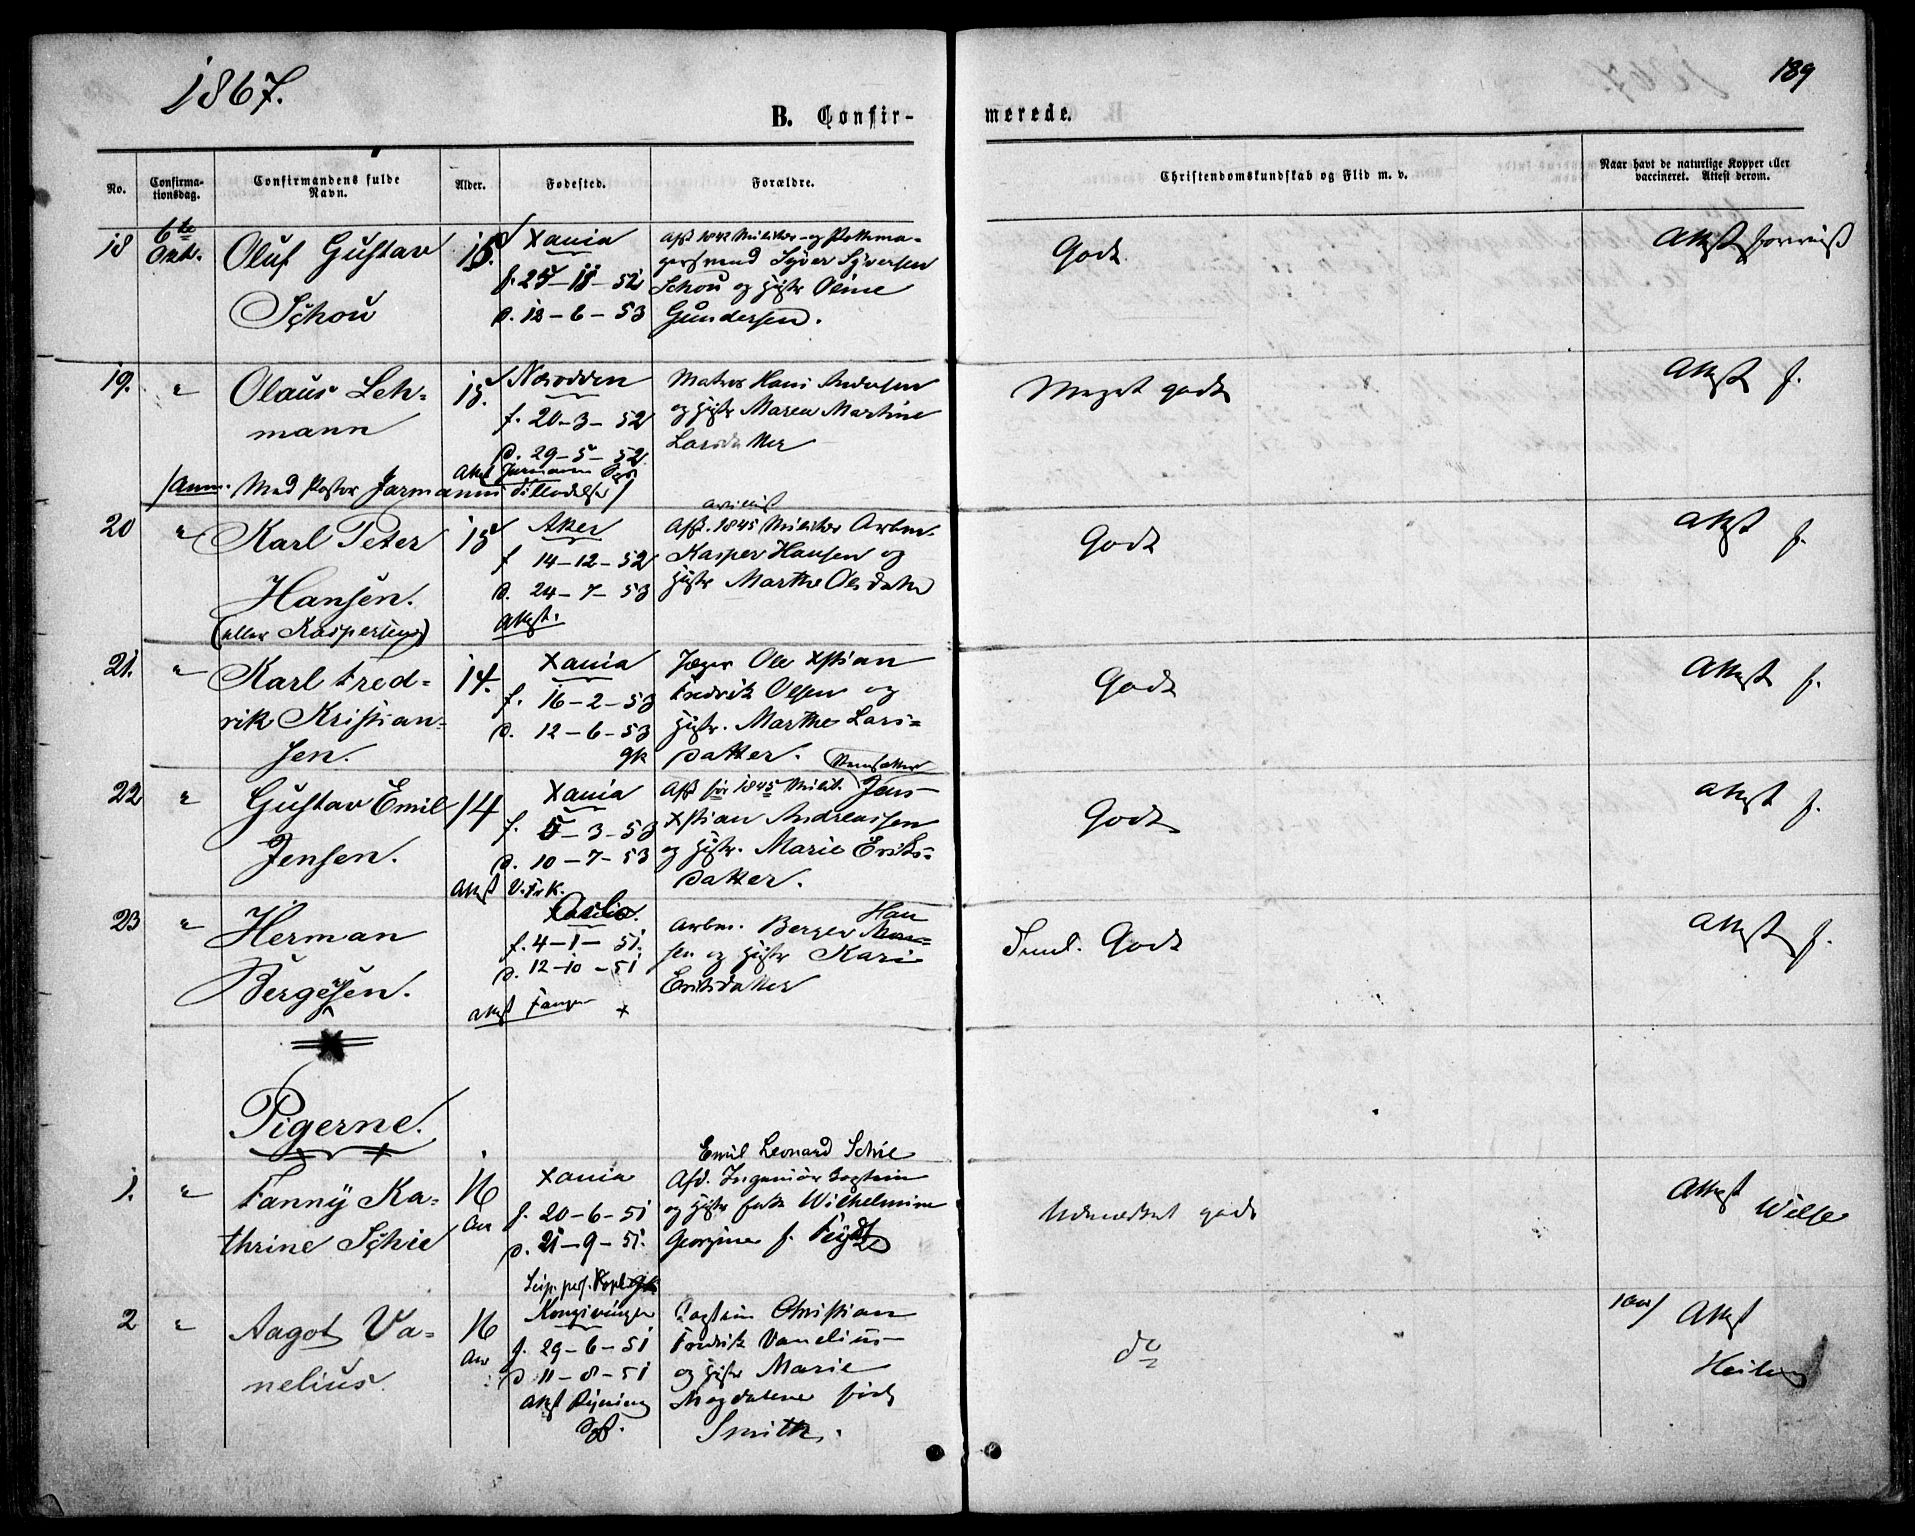 1867.
189
B. Confir-
merede.
No.
Confirma-
tionsdag.
Confirmandens fulde
Navn.
Alder.
Fødested.
Forældre.
Christendomskundskab og Flid m. v.
Naar havt de naturlige Kopper eller
vaccineret. Attest derom.
18
6te
Okt.
Oluf Gustav
Schou
15.
Xania
f. 25-11-52
d. 12-6-53
Afsk. 1842 Militær- og
Syver Syversen
Schou og Hustr Oline
Gundersen.
Godt
Attest forevist
19.
"
Olaus Leh-
mann
15.
Næsodden
f. 20-3-52
d. 29-5-52
Matros Hans Andersen
og Hustr Maren Martine
Larsdatter
Meget godt
Attest f.
/Anm. Med Pastor Jarmanns Tilladelse/
20
"
Karl Peter
Hansen.
(eller Kaspersen)
15
Aker
f 14-12-52
d. 24-7-53
Attest.
Afsk. 1845 Militær Arbm.
Kasper Hansen og
Hustr Marthe Olsdatter
Godt
Attest f.
21.
"
Karl Fred-
rik Kristian-
sen.
14.
Xania
f. 16-2-53
d. 12-6-53
gk
Jæger Ole Xstian
Fredrik Olsen og
Hustr. Marthe Lars-
datter.
Godt
Attest f.
22
"
Gustav Emil
Jensen.
14
Xania
f. 5-3-53
d. 10-7-53
Attest V. Frk.
Afsk før 1845 Milit. Jens
Xstian Andreassen
og Hustr. Marie Eriks-
datter.
Godt
Attest f.
23
"
Herman
Bergesen.
Oslo.
f. 4-1-51.
d. 12-10-51
Attest Fanger +
Arbm. Berger Han
sen og Hustr Kari
Eriksdatter
Teml. Godt
Attest f.
Pigerne.
1.
"
Fanny Ka-
thrine Schie
16
Aar
Xania
f. 20-6-51
d. 21-9-51.
Emil Leonard Schie
Afd. Ingeniør Captein
og Hustr født Wilhelmine
Georgine f.
Udmærket godt
Attest Wilse
2
"
Aagot Va-
nelius.
16
Aar
Kongsvinger
f. 29-6-51
d 11-8-51
Captein Christian
Fredrik Vanelius
og Hustr Marie
Magdalene født
Smith.
do
Attest